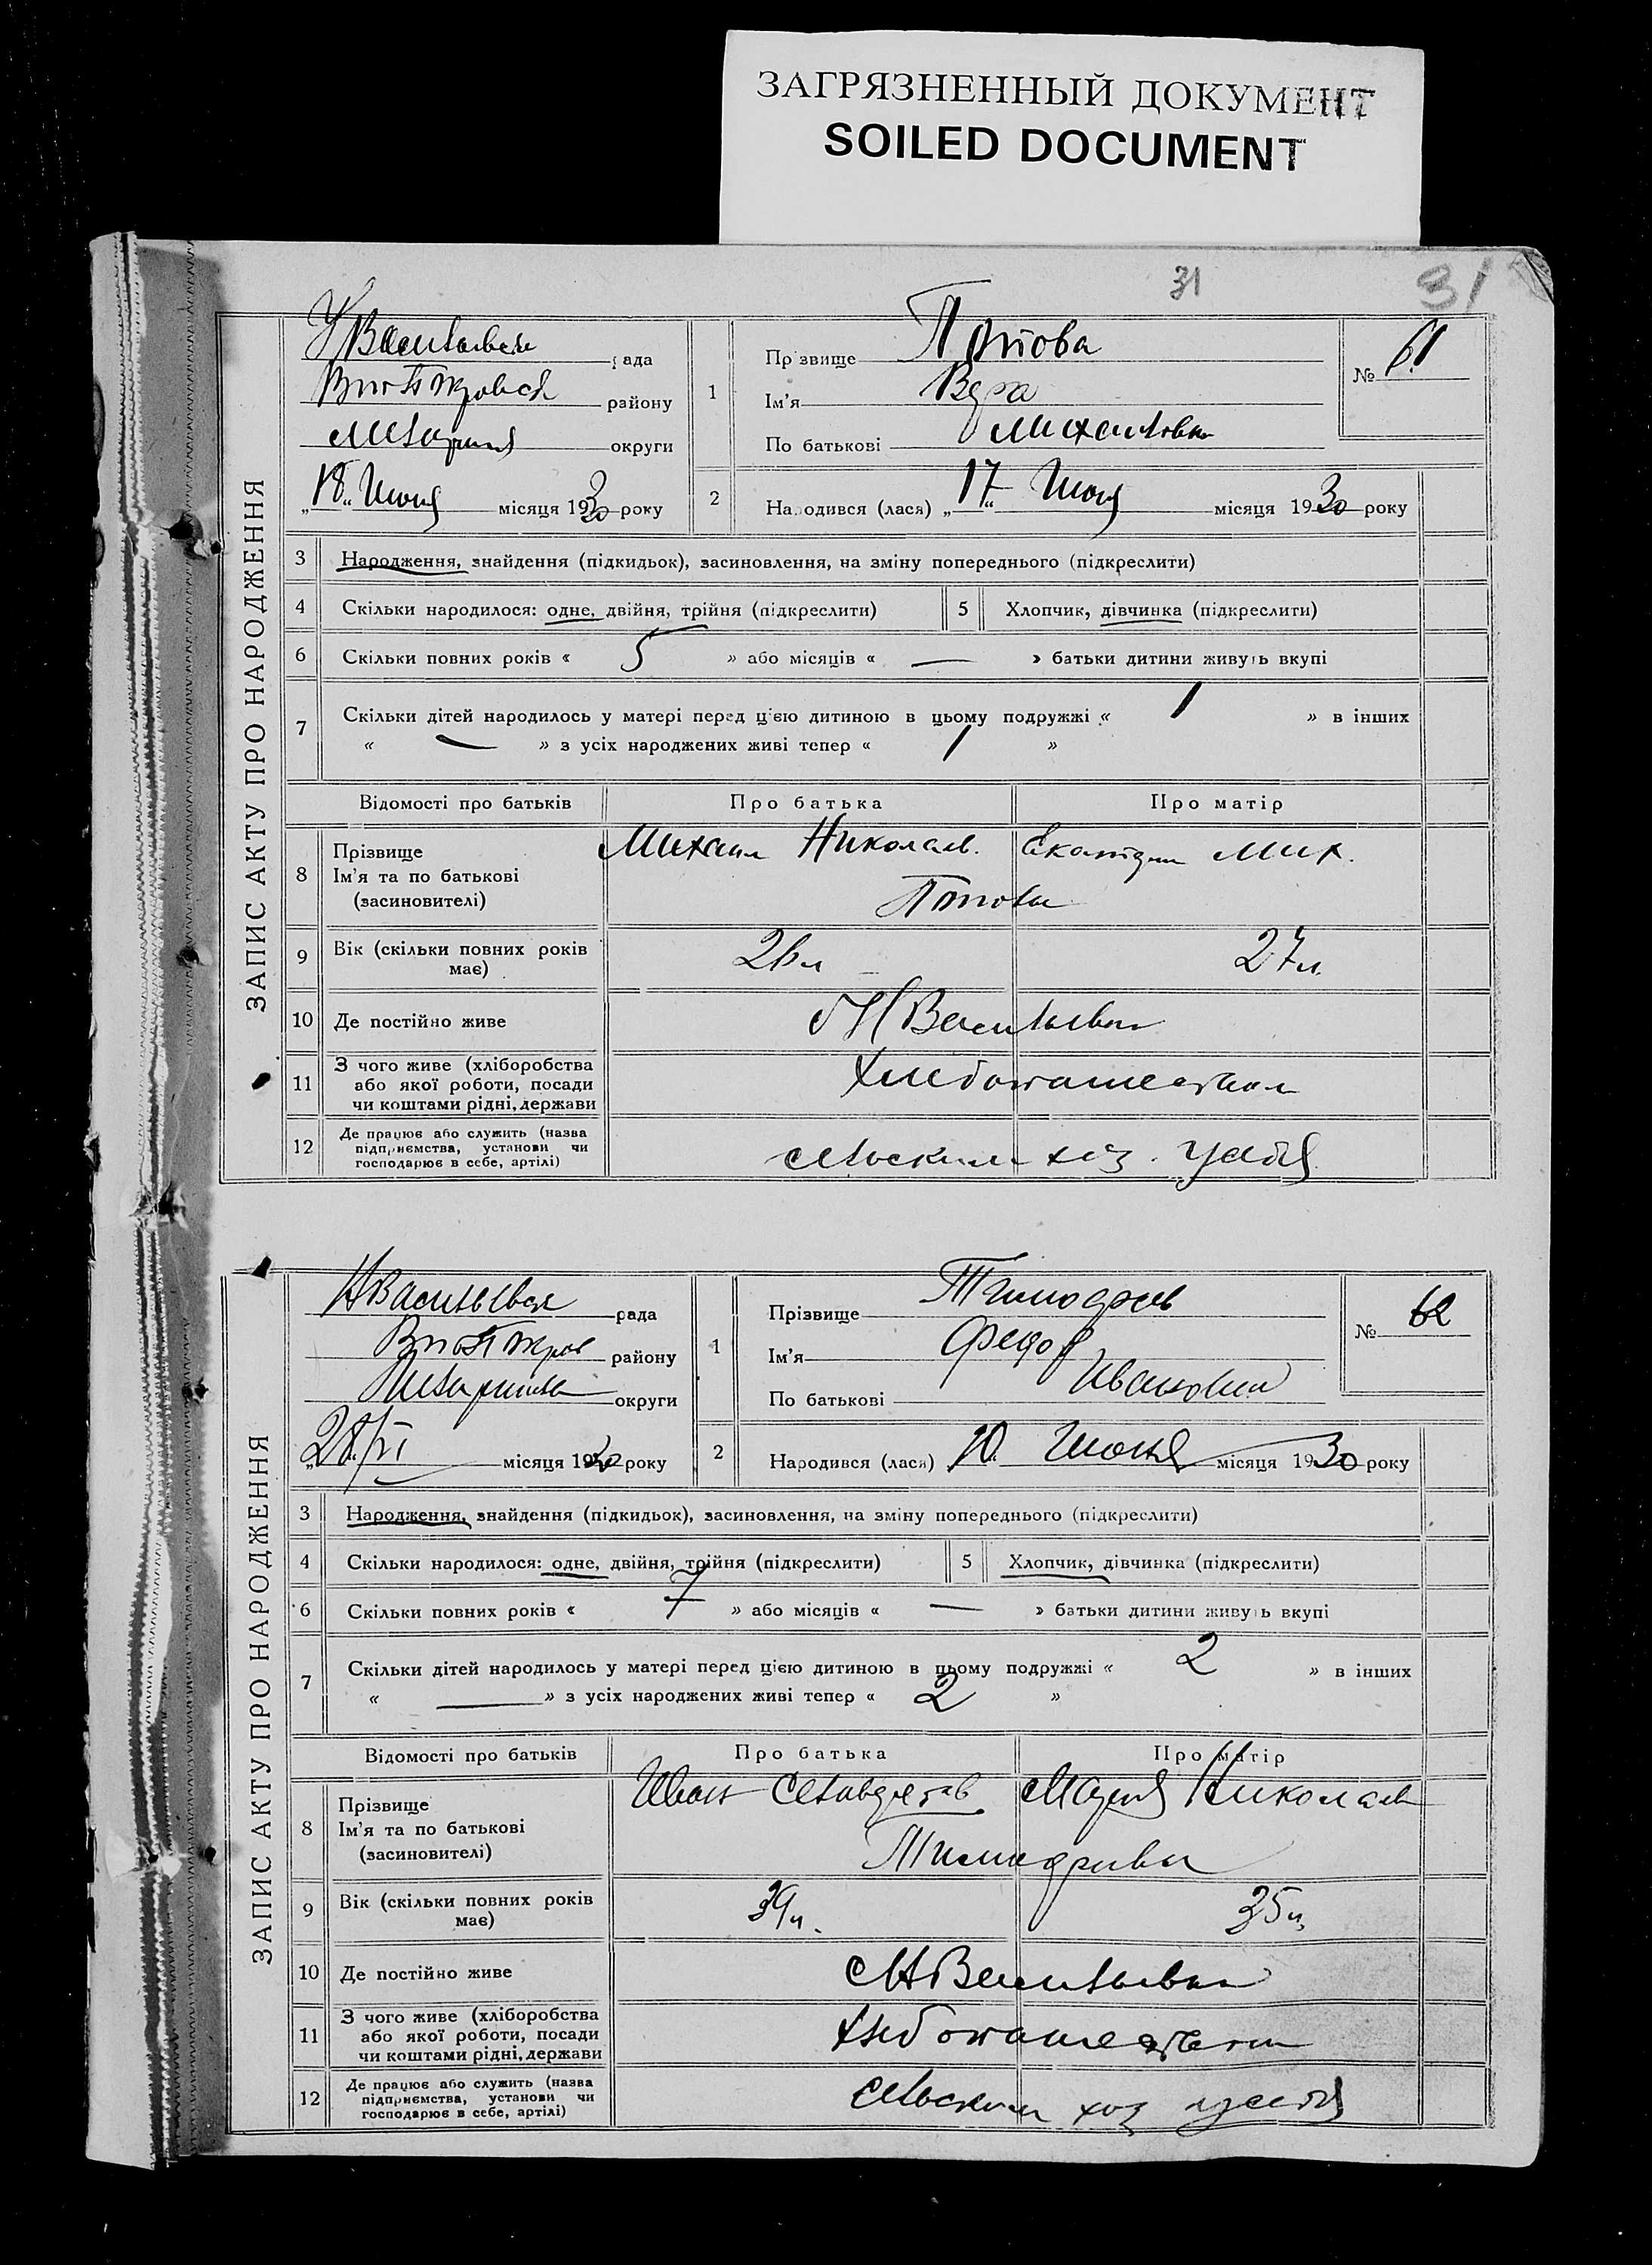 ЗАГРЯЗНЕННЫЙ ДОКУМЕНТ
SOILED DOCUMENT
31
31
ЗАПИС АКТУ ПРО НАРОДЖЕННЯ
рада
району
округи
„18“ Июня місяця 1930 року
1
Прізвище
Ім'я Вера
По батькові Михайловна
№ 61
2
Народився (лася) „17“ Июня місяця 1930 року
3 Народження, знайдення (підкидьок), засиновлення, на зміну попереднього (підкреслити)
4 Скільки народилося: одне, двійня, трійня (підкреслити) 5 Хлопчик, дівчинка (підкреслити)
6 Скільки повних років « 5 » або місяців « — » батьки дитини живуть вкупі
7 Скільки дітей народилось у матері перед цією дитиною в цьому подружжі « 1 » в інших
« — » з усіх народжених живі тепер « 1 »
Відомості про батьків Про батька Про матір
8 Прізвище
Ім'я та по батькові
(засиновителі)
Михаил Николаев. Мих.
9 Вік (скільки повних років
має)
26 л 27 л.
10 Де постійно живе Н Васильевка
11 З чого живе (хліборобства
або якої роботи, посади
чи коштами рідні, держави
Хлебопашеством
12 Де працює або служить (назва
підприємства, установи чи
господарює в себе, артілі)
сельским хоз. у себя
ЗАПИС АКТУ ПРО НАРОДЖЕННЯ
НВасильевская рада
району
округи
„28/VI місяця 1930 року
1
Прізвище
Ім'я Федор
По батькові Иванович
№ 62
2
Народився (лася) „10“ Июня місяця 1930 року
3 Народження, знайдення (підкидьок), засиновлення, на зміну попереднього (підкреслити)
4 Скільки народилося: одне, двійня, трійня (підкреслити) 5 Хлопчик, дівчинка (підкреслити)
6 Скільки повних років « 7 » або місяців « — » батьки дитини живуть вкупі
7 Скільки дітей народилось у матері перед цією дитиною в цьому подружжі « 2 » в інших
« — » з усіх народжених живі тепер « 2 »
Відомості про батьків Про батька Про матір
8 Прізвище
Ім'я та по батькові
(засиновителі)
Иван Мария Николаев
9 Вік (скільки повних років
має)
39 л. 35 л.
10 Де постійно живе с НВасильевка
11 З чого живе (хліборобства
або якої роботи, посади
чи коштами рідні, держави
хлебопашеством
12 Де працює або служить (назва
підприємства, установи чи
господарює в себе, артілі)
сельским хоз у себя